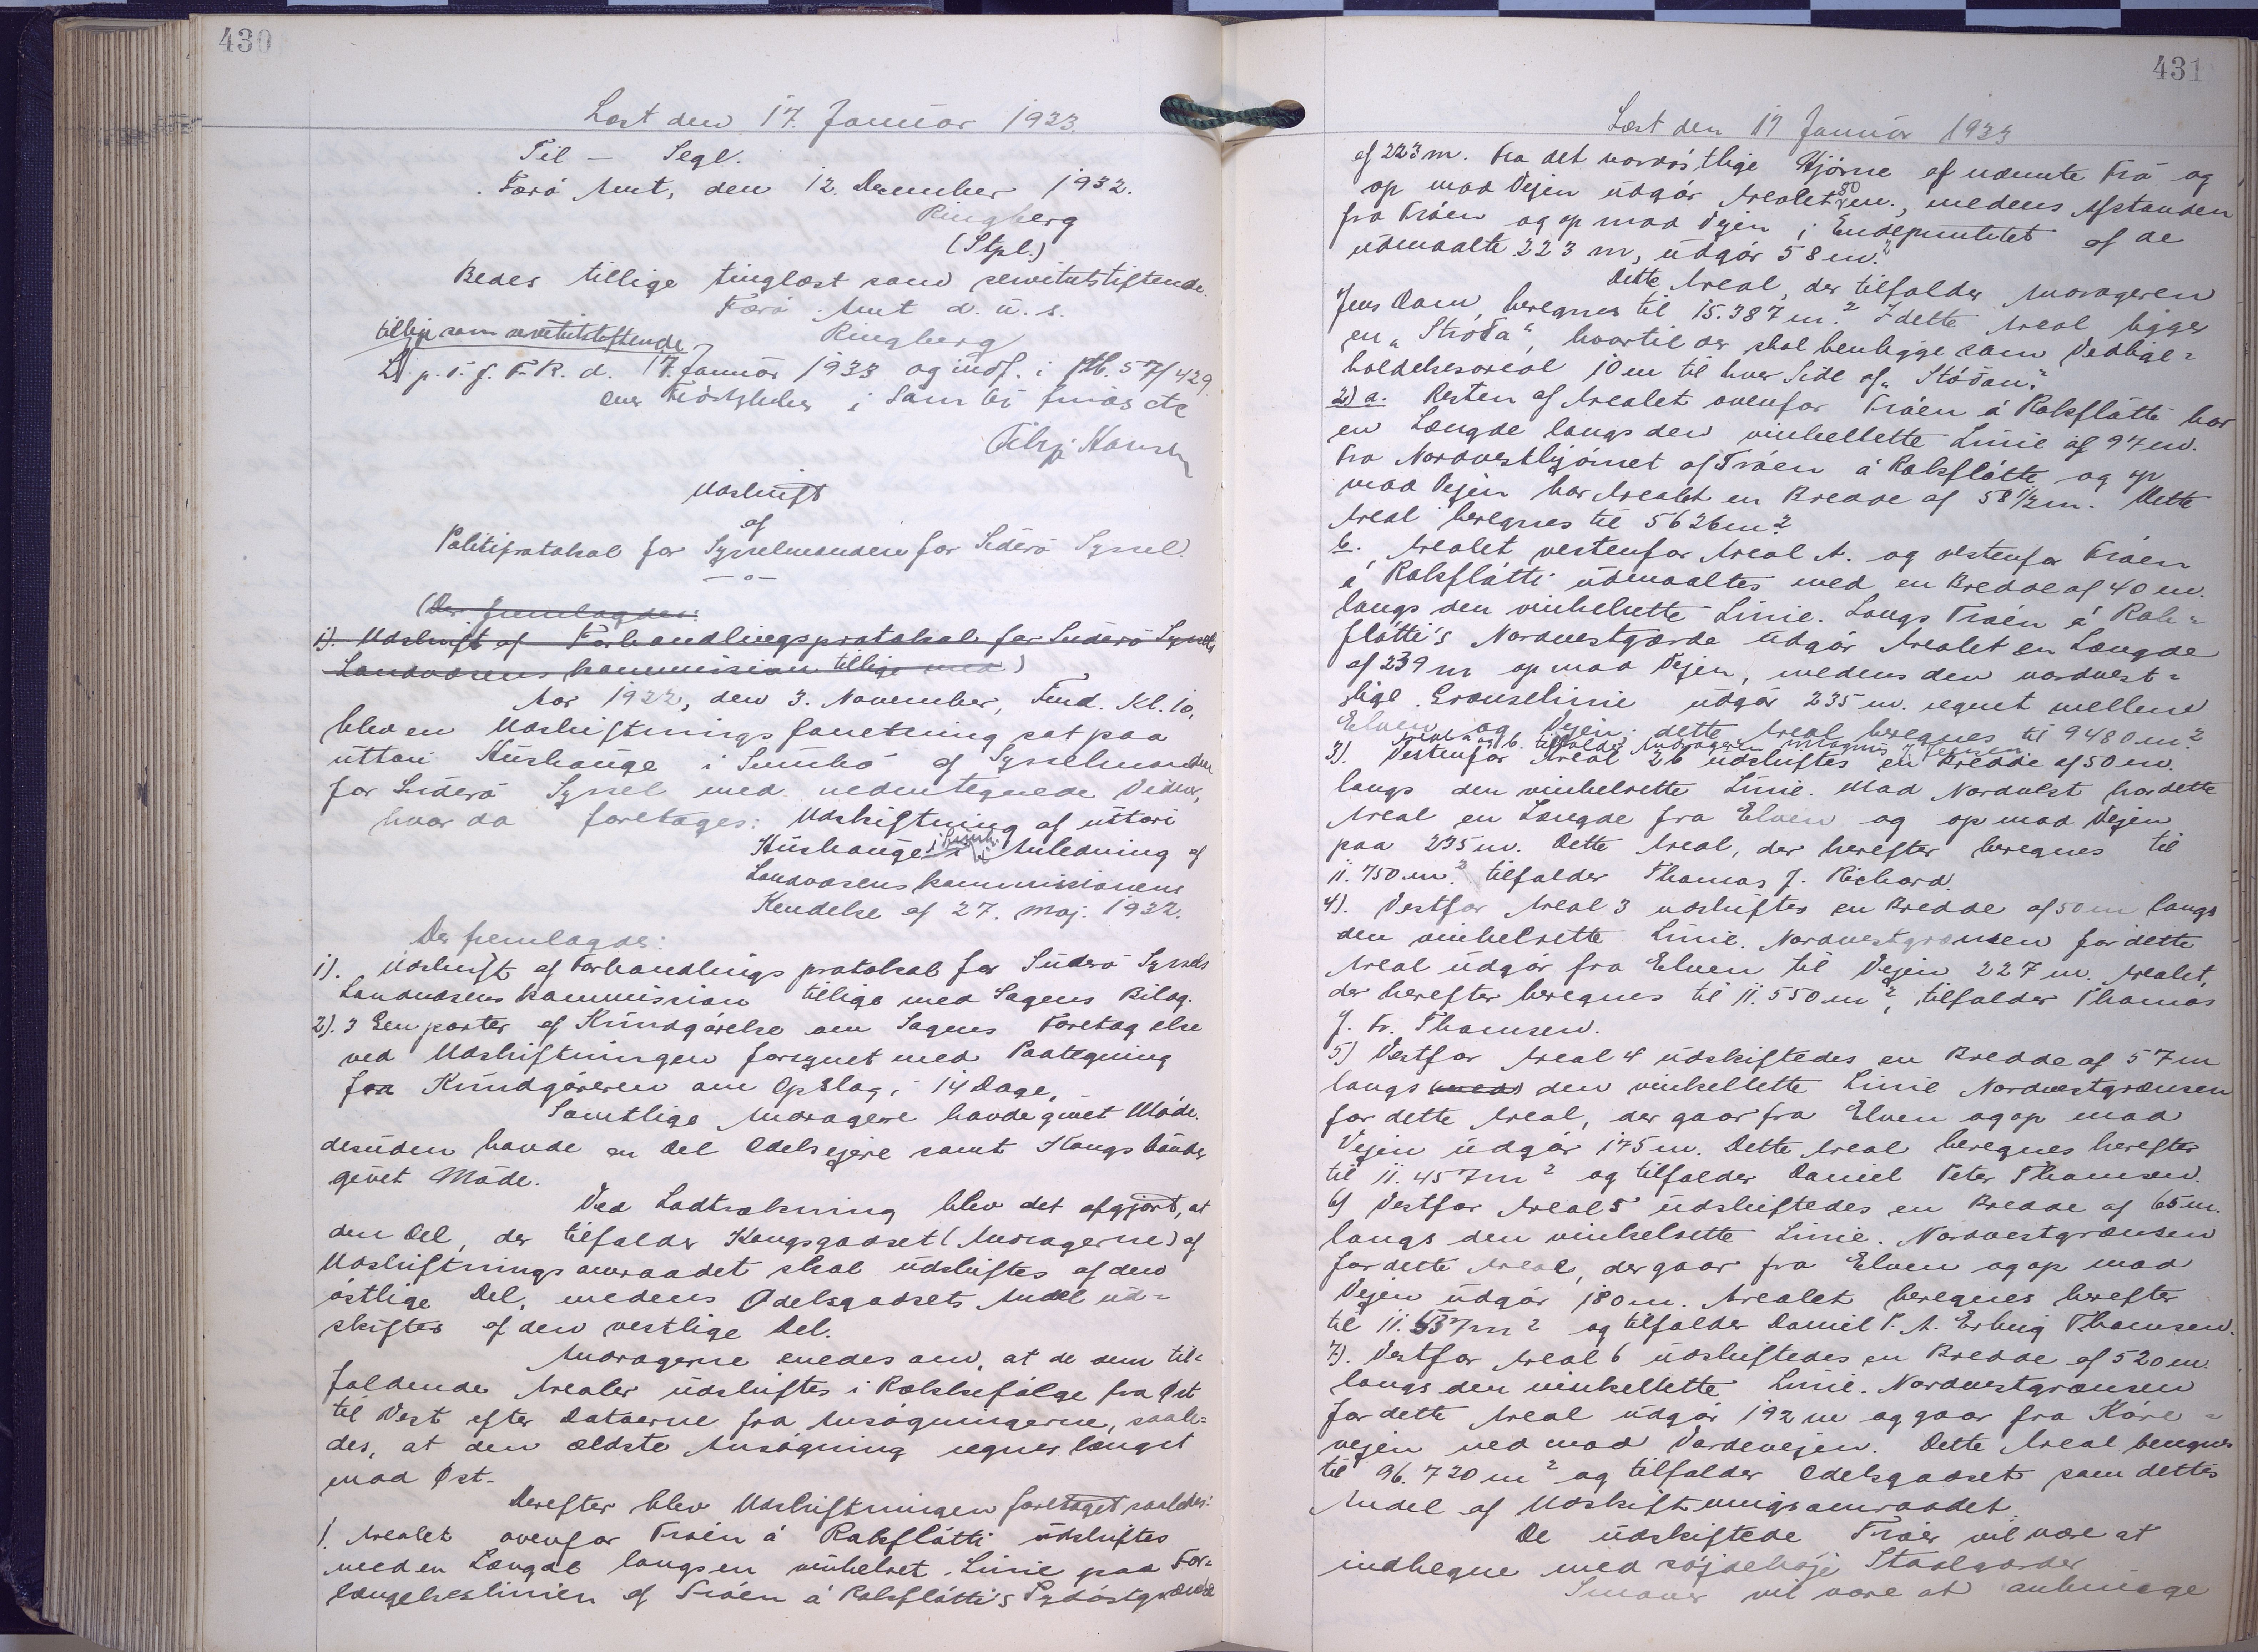 430
Læst den 17. Januar 1933.
Til - Segl.
Færö Amt, den 12. December 1932.
Ringberg
(Stpl.)
Bedes tillige tinglæst som servitutstiftende.
Færö Amt d. u. s.
Ringberg
tillige som servitutstiftende
L. p. T. f. F. R. d. 17. Januar 1933 og indf. i Ptb. 57/429.
i Sumbö
Udskrift
af
Politiprotokol for Sysselmanden for Süderö Syssel.
- o -
(Der fremlagdes:
1). Udskrift af Forhandlingsprotokol for Süderö Syssels
Landvæsenskommission tillige med)
Aar 1922, den 3. November, Fmd. Kl. 10,
blev en Udskiftningsforretning sat paa
úttari Húshauge i Sumbö af Sysselmanden
for Süderö Syssel med nedentegnede Vidner,
hvor da foretages: Udskiftning af úttari
Húshauge i Sumb. i Anledning af
Landvæsenskommissionens
Kendelse af 27. Maj. 1932.
Der fremlagdes:
1). Udskrift af Forhandlingsprotokol for Süderö Syssels
Landvæsenskommission tillige med Sagens Bilag.
2). 3 Eenparter af Kundgörelse om Sagens Foretagelse
ved Udskiftningen forsynet med Paategning
fra Kundgöreren om Opslag i 14 Dage.
Samtlige Andragere havde givet Möde.
desuden havde en Del Odelsejere samt Kongsbönder
givet Möde.
Ved Lodtrækning blev det afgjort, at
den Del, der tilfalder Kongsgodset (Andragerne) af
Udskiftningsomraadet skal udskiftes af den
östlige Del, medens Odelsgodsets Andel ud-
skiftes af den vestlige Del.
Andragerne enedes om, at de dem til-
faldende Arealer udskiftes i Rækkefölge fra Öst
til Vest efter Datoerne fra Ansögningerne, saale-
des, at den ældste Ansögning regnes længst
mod Öst.
Derefter blev Udskiftningen foretaget saaledes:
1. Arealet ovenfor Tröen á Rokflötti udskiftes
med en Længde langs en vinkelret Linie paa For-
længelseslinien af Tröen á Rokflötti's Sydöstgrænse
431
Læst den 17 Januar 1933
af 223 m. Fra det nordöstlige Hjörne af nævnte Trö og
op mod Vejen udgör Arealet 80 m., medens Afstanden
fra Tröen og op mod Vejen i Endepunktet af de
udmaalte 223 m, udgör 58 m.
Dette Areal, der tilfalder Andrageren
Jens Dam, beregnes til 15.387 m.² I dette Areal ligger
en "Stöða", hvortil der skal henligge som Vedlige-
holdelsesareal 10 m til hver Side af "Stöðan."
2) a. Resten af Arealet ovenfor Tröen á Rokflötti har
en Længde langs den vinkelrette Linie af 97 m.
Fra Nordvesthjörnet af Tröen á Rokflötte og op
mod Vejen har Arealet en Bredde af 58 1/2 m. Dette
Areal beregnes til 5626 m²
b. Arealet vestenfor Areal A. og vestenfor Tröen
á Rokflötti udmaaltes med en Bredde af 40 m.
langs den vinkelrette Linie. Langs Tröen á Rok-
flötti's Nordvestgærde udgör Arealet en Længde
af 239 m op mod Vejen, medens den nordvest-
lige Grænselinie udgör 235 m. regnet mellem
Elven og Vejen. dette Areal beregnes til 9480 m²
Areal a og b. tilfalder Andrageren Magnus J. Jensen.
3). Vestenfor Areal 2b udskiftes en Bredde af 50 m.
langs den vinkelrette Linie. Mod Nordvest har dette
Areal en Længde fra Elven og op mod Vejen
paa 235 m. Dette Areal, der herefter beregnes til
11.750 m.² tilfalder Thomas J. Richard.
4). Vestfor Areal 3 udskiftes en Bredde af 50 m langs
den vinkelrette Linie. Nordvestgrænsen for dette
Areal udgör fra Elven til Vejen 227 m. Arealet,
der herefter beregnes til 11.550 m², tilfalder Thomas
J. Fr. Thomsen.
5) Vestfor Areal 4 udskiftedes en Bredde af 57 m
langs (med) den vinkelrette Linie Nordvestgrænsen
for dette Areal, der gaar fra Elven og op mod
Vejen udgör 175 m. Dette Areal beregnes herefter
til 11.457 m² og tilfalder Daniel Peter Thomsen.
6) Vestfor Areal 5 udskiftedes en Bredde af 65 m.
langs den vinkelrette Linie. Nordvestgrænsen
for dette Areal, der gaar fra Elven og op mod
Vejen udgör 180 m. Arealet beregnes herefter
til 11.537 m² og tilfalder Daniel P. A. Erling Thomsen.
7). Vestfor Areal 6 udskiftedes en Bredde af 520 m.
langs den vinkelrette Linie. Nordvestgrænsen
for dette Areal udgör 192 m og gaar fra Köre-
vejen ned mod Vardevejen. Dette Areal beregnes
til 96.720 m² og tilfalder Odelsgodset som dettes
Andel af Udskiftningsomraadet.
De udskiftede Tröer vil være at
indhegne med Staalgærder
vil være at anbringe